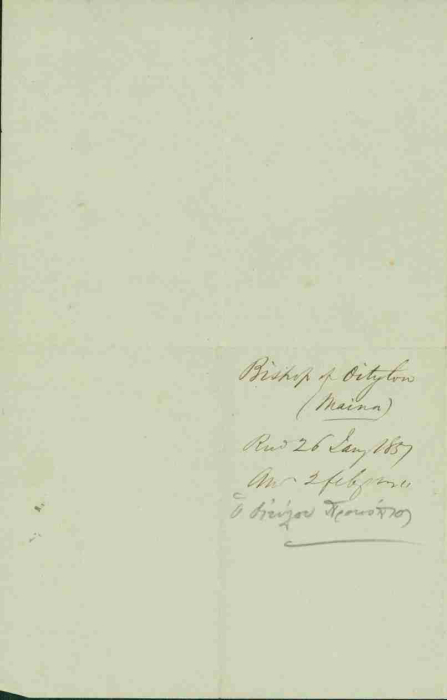 Bishop of Oitylon
(Maina)
Recd 26 Jany 1857
An 2 feby
ὁ Οἰτύλου Προκόπιος